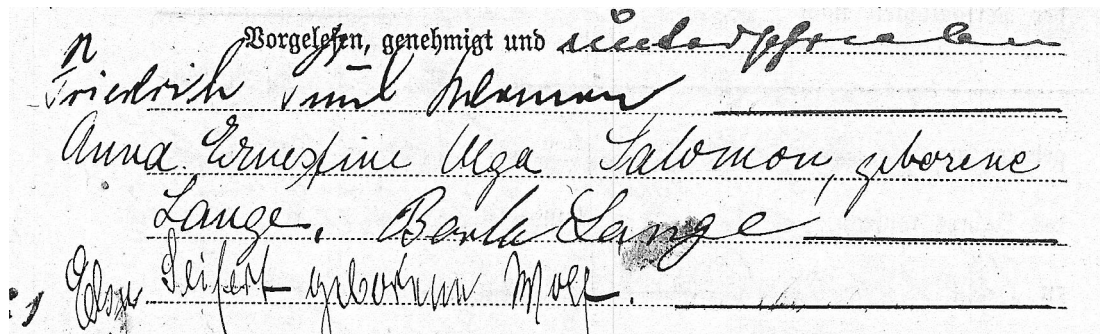 Vorgelesen, genehmigt und unterschrieben
Friedrich Salomon
Anna Ernestine Olga Salomon, geborene
Lange. Lange
Seifert geborene Wolf.